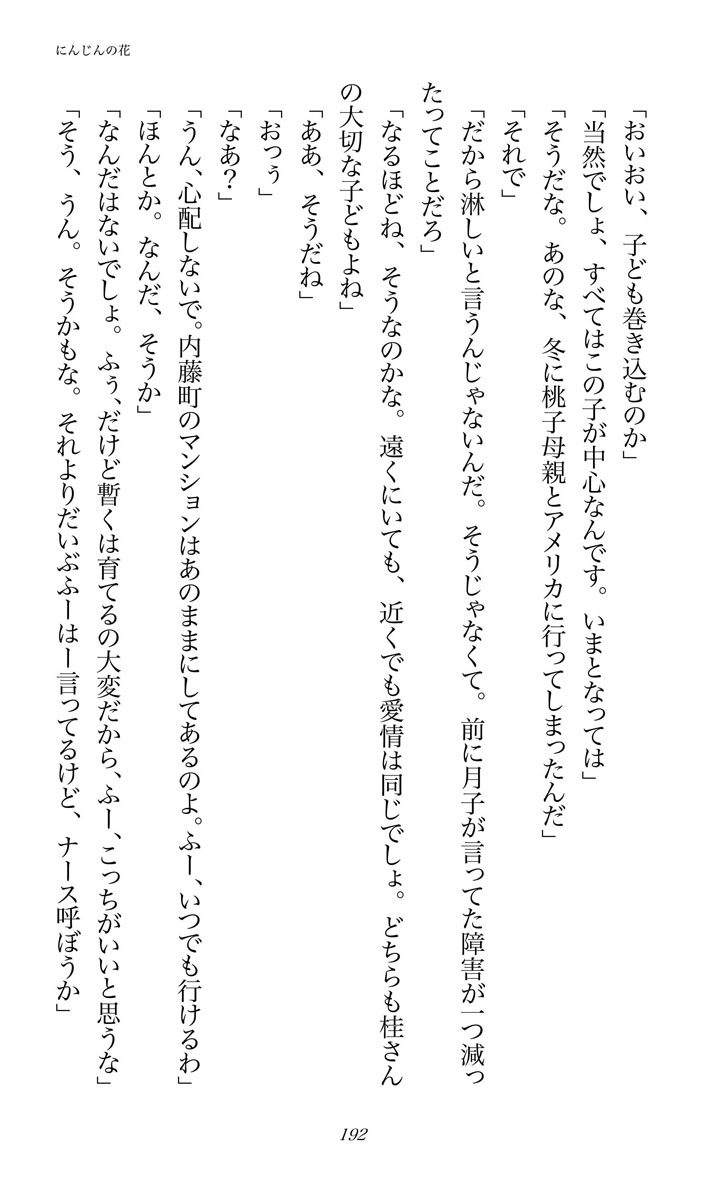 にんじんの花
「おいおい、子ども巻き込むのか」
「当然でしょ、すべてはこの子が中心なんです。いまとなっては」
「そうだな。あのな、冬に桃子母親とアメリカに行ってしまったんだ」
「それで」
「だから淋しいと言うんじゃないんだ。そうじゃなくて。前に月子が言ってた障害が一つ減っ
たってことだろ」
「なるほどね、そうなのかな。遠くにいても、近くでも愛情は同じでしょ。どちらも桂さん
の大切な子どもよね」
「ああ、そうだね」
「おっぅ」
「なあ？」
「うん、心配しないで。内藤町のマンションはあのままにしてあるのよ。ふー、いつでも行けるわ」
「ほんとか。なんだ、そうか」
「なんだはないでしょ。ふぅ、だけど暫くは育てるの大変だから、ふー、こっちがいいと思うな」
「そう、うん。そうかもな。それよりだいぶふーはー言ってるけど、ナース呼ぼうか」
192